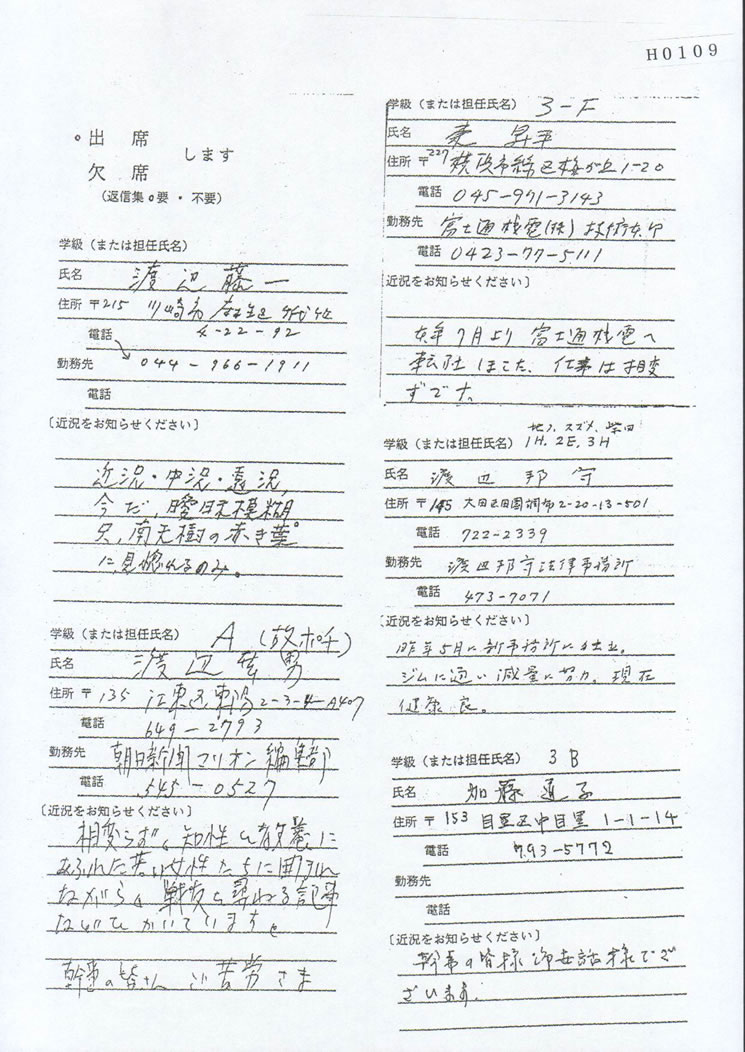 H0109
出席
欠席
します
(返信集 要・不要)
学級(または担任氏名)
氏名 渡辺藤一
住所 〒215 川崎市麻生区
4-22-92
電話
044-966-1911
勤務先
電話
〔近況をお知らせください〕
近況・中況・遠況、
今だ、曖昧模糊
只、南天樹の赤き葉
に見惚れるのみ。
学級(または担任氏名) A
氏名 渡辺 男
住所 〒135 江東区東陽2-3-4-A407
電話 649-2793
勤務先 朝日新聞マリオン編集部
電話 545-0527
〔近況をお知らせください〕
相変らず、知性と教養に
あふれた若い女性たちに囲まれ
ながら、戦友を尋ねる記事
などかいています。
幹事の皆さん ご苦労さま
学級(または担任氏名) 3-F
氏名 昇平
住所 〒227 横浜市緑区梅が丘1-20
電話 045-971-3143
勤務先 富士通機電(株)技術本部
電話 0423-77-5111
近況をお知らせください〕
本年7月より富士通機電へ
転社しました。仕事は相変
ずです。
スズメ、柴田
学級(または担任氏名) 1H、2E、3H
氏名 渡辺邦守
住所 〒145 大田区田園調布2-20-13-501
電話 722-2339
勤務先 渡辺邦守法律事務所
電話 473-7071
〔近況をお知らせください〕
昨年5月に新事務所に独立。
ジムに通い減量に努力。現在
健康良。
学級(または担任氏名) 3B
氏名 加藤道子
住所 〒153 目黒区中目黒 1-1-14
電話 793-5772
勤務先
電話
〔近況をお知らせください〕
幹事の皆様御世話様でご
ざいます。